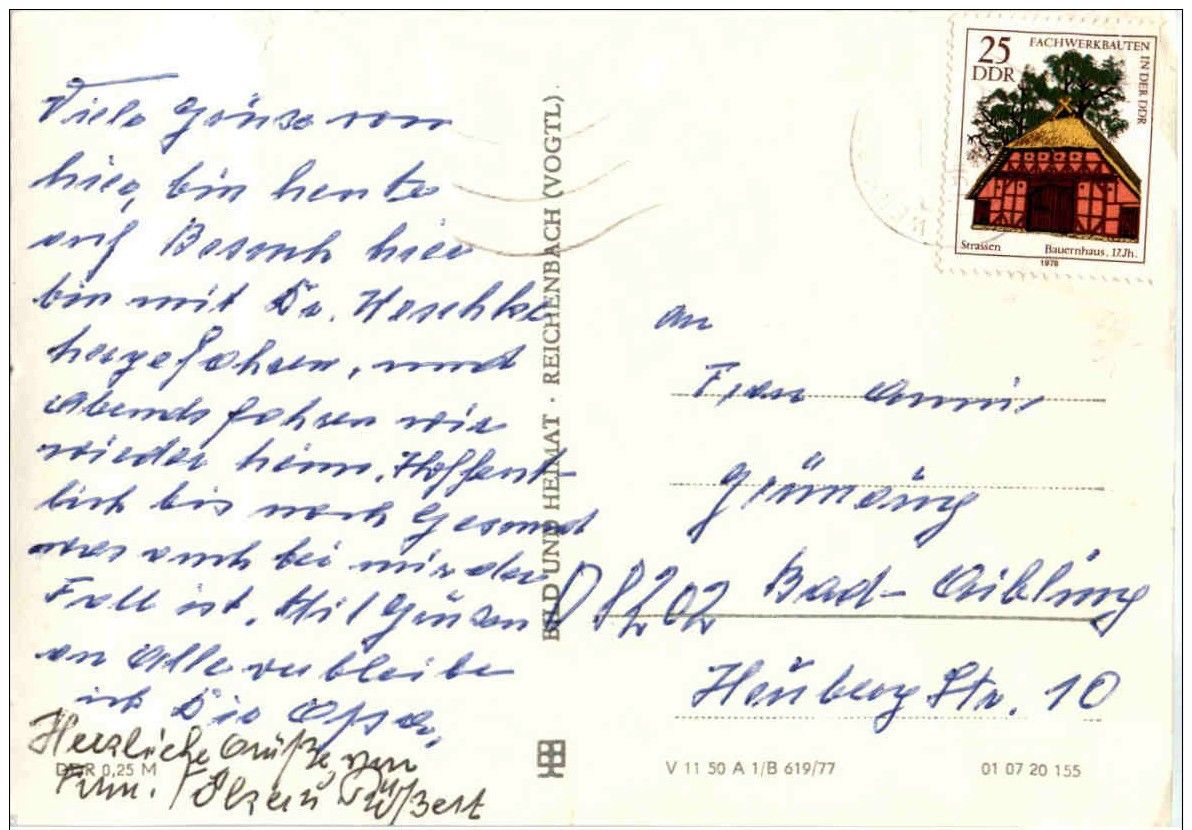 Viele Grüsse von
hier, bin heute
auf Besuch hier
bin mit Dr.
hergefahren, und
Abends fahren wir
wieder heim. Hoffent-
lich bis noch Gesund
was auch bei mir der
Fall ist. Mit Grüsen
an Alle verbleibe
ich Die
Herzliche Grüße von
Fam.
DDR 0,25 M
BILD UND HEIMAT · REICHENBACH (VOGTL).
25
DDR
FACHWERKBAUTEN
IN DER DDR
Strassen Bauernhaus, 17.Jh.
1978
An
Frau
D 8202 Bad-Aibling
Heuberg Str. 10
V 11 50 A 1/B 619/77 01 07 20 155